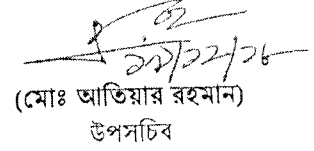 (মোঃ আতিয়ার রহমান)
উপসচিব